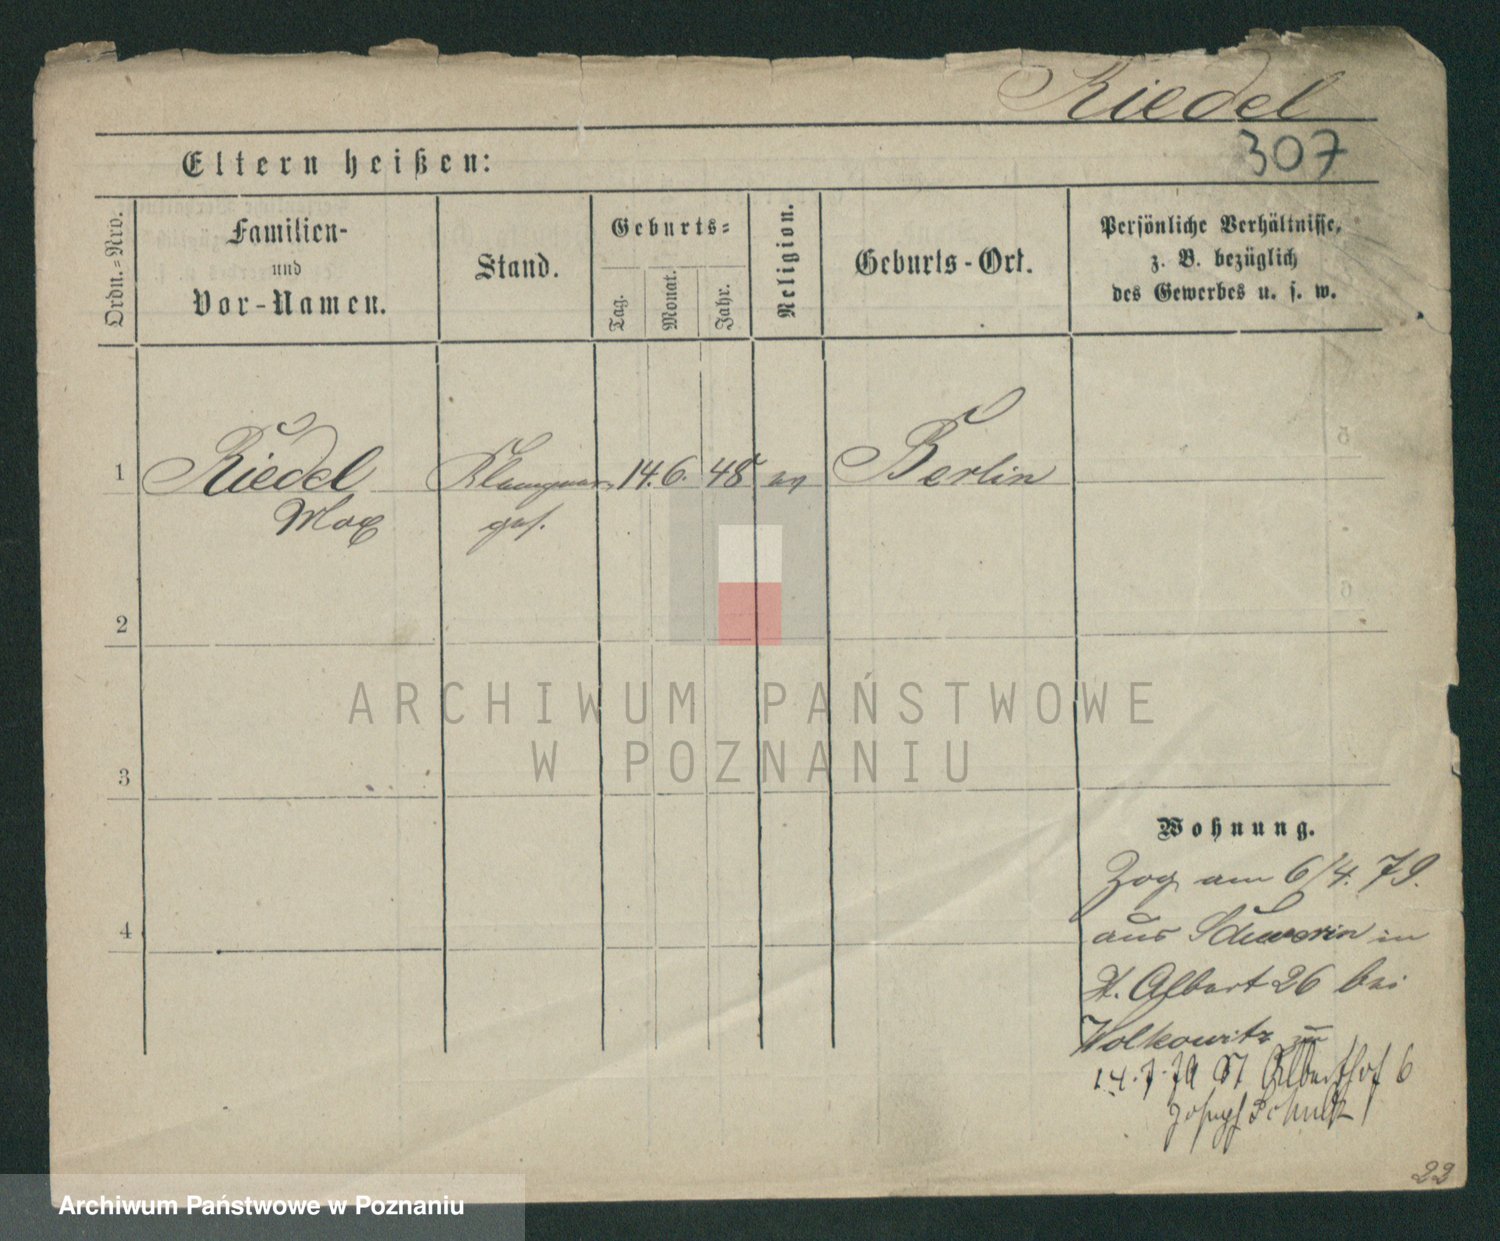 Riedel
307
Eltern heißen:
Ordn.-Nro.
Familien-
und
Vor-Namen.
Stand.
Geburts-
Tag.
Monat.
Jahr.
Religion.
Geburts-Ort.
Persönliche Verhältnisse,
z. B. bezüglich
des Gewerbes u. s. w.
1 Riedel 14. 6. 48 Berlin
Max
2
ARCHIWUM PAŃSTWOWE
W POZNANIU
3
Wohnung.
Zog am 6/4. 79.
4
aus Schwerin in
St. Albert 26 bei
Wolkowitz
14.7.79 St Alberthof 6
Joseph Schulz
22
Archiwum Państwowe w Poznaniu